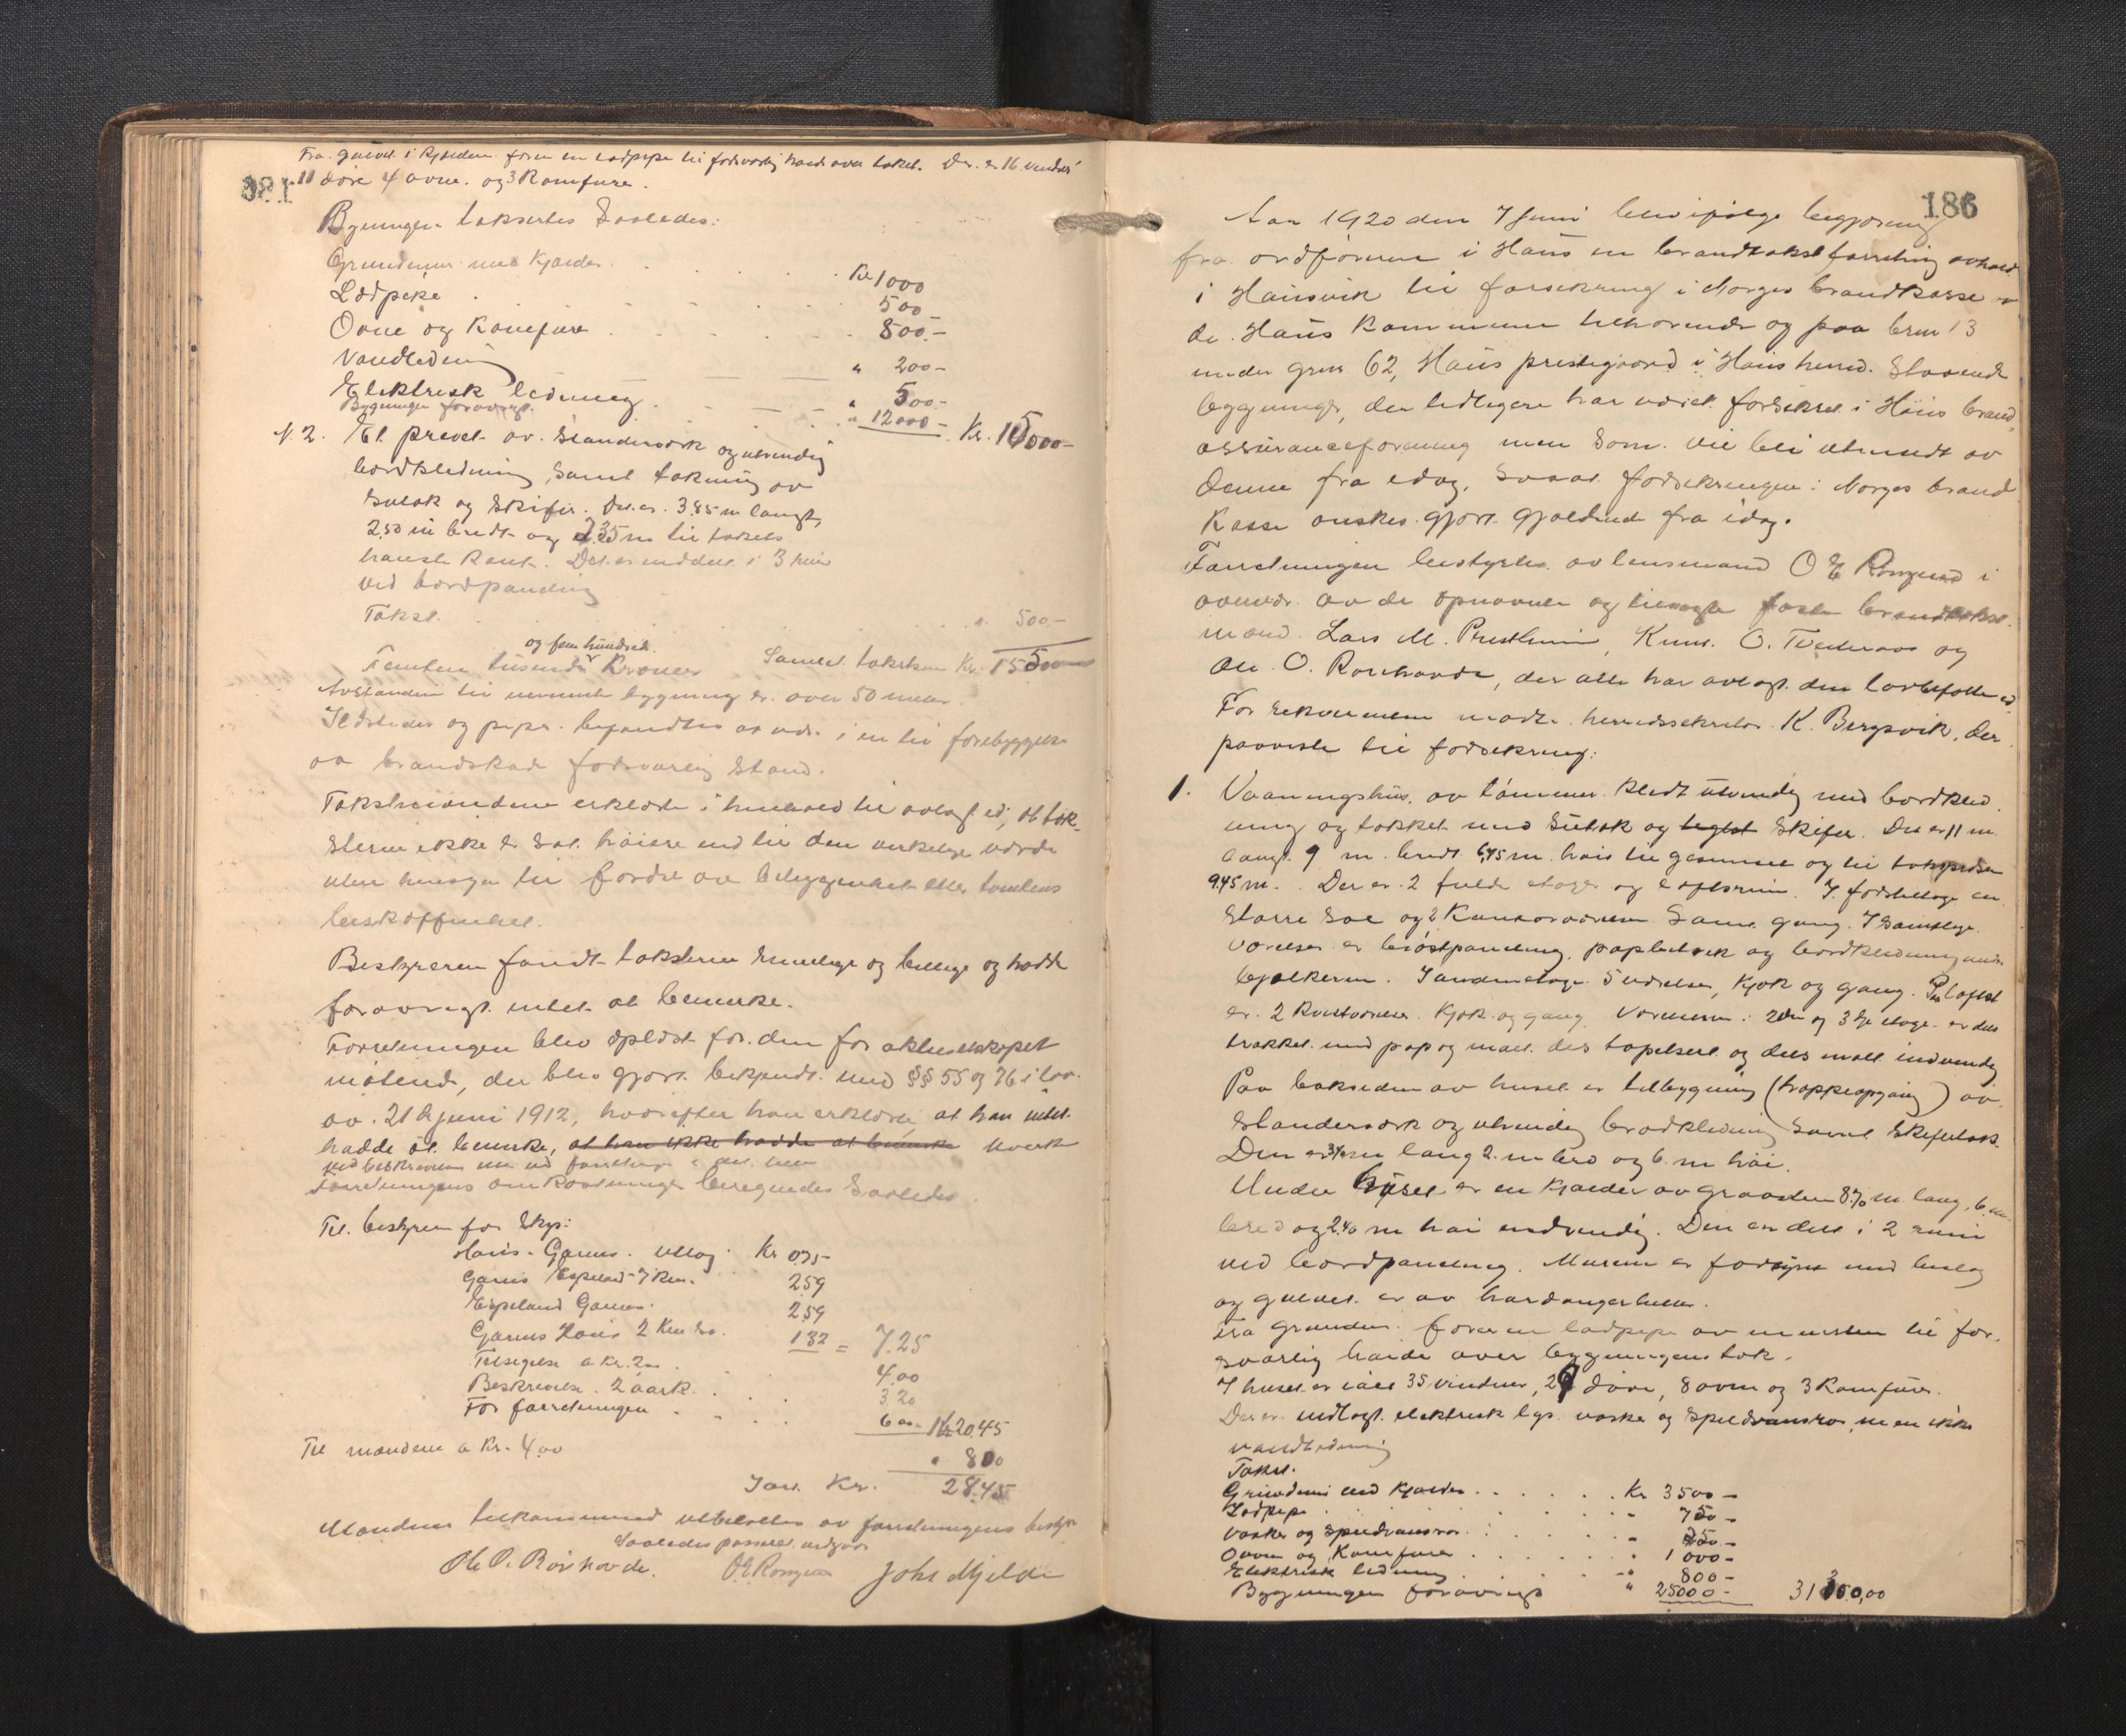 Fra gulvet i kjælderen fører en lodpipe til forsvarlig høide over taket. Der er 16 vinduer
11 døre 4 ovne og 3 Komfurer.
Bygningen taksertes saaledes:
Grundmur med Kjælder Kr 1000
Lodpipe 500 -
Ovne og Komfurer 800.-
Vandledning " 200 -
Elektrisk ledning " 500.-
Bygningen forøvrigt " 12000 - Kr. 15000 -
N. 2. Et privet av standerverk og utvendig
bordklædning, samt tækning av
sutak og skifer. Det er 3.85 m langt,
2,50 m bredt og 2.35 m til takets
høieste kant. Det er inddelt i 3 rum
ved bordpanding
Takst " 500.-
og fem hundrede
Femten tusende Kroner Samlet takstsum Kr. 15500
Avstanden til nærmeste bygning er over 50 meter.
Ildsteder og piper befandtes at være i en til forebyggelse
av brandskade forsvarlig stand.
Takstmændene erklærte i henhold til avlagt ed, at tak-
sterne ikke er sat høiere end til den virkelige værdi
uten hensyn til fordel av beliggenhet eller tomtens
beskaffenhet.
Bestyreren fandt taksterne rimelige og billige og hadde
forøvrigt intet at bemerke.
Forretningen blev oplæst for den for aktieselskapet
møtende, der blev gjort bekjendt med §§ 55 og 76 i lov
av 21 juni 1912, hvorefter han erklærte, at han intet
hadde at bemerke, at han ikke hadde at bemerke hverken
ved beskrivelsen eller ved forretningen i det hele
Forretningens omkostninger beregnedes saaledes.
Til bestyreren for Skyds:
Haus - Garnes utlæg Kr 075-
Garnes Espeland 7 Km. 259
Espeland Garnes 259
Garnes Haus 2 Km 132 = 7.25
Tilsigelse a Kr. 2 4.00
Beskrivelse 2 aark. 3.20
For forretningen 6 oo - Kr 20.45
Til mændene a Kr. 4.00 " 8 00
Ialt Kr. 28.45
Mændenes tilkommende utbetaltes av forretningens bestyrer
Saaledes passeret vidner
Ole O. Rørhovde. O E Romgsen Johs Mjelde
186
Aar 1920 den 7 Juni blev ifølge begjæring
fra ordføreren i Haus en brandtakstforretning avholdt
i Hausvik til forsikring i Norges brandkasse av
de Haus Kommune tilhørende og paa brnr 13
under grnr 62, Haus prestegaard i Haus herred. staaende
bygninger, der tidligere har været forsikret i Haus brand
assuranceforening men som vil bli utmeldt av
denne fra idag, saaat forsikringen i Norges brand
kasse ønskes gjort gjældende fra idag.
Forretningen bestyrtes av lensmand O E i
overvær av de opnævnte og tilsagte faste brandtakst
mænd Lars M. Prestheim, Knut O. Tvedteraas og
Ole O. Rørhovde, der alle har avlagt den lovbefalte ed
For rekvirenten møtte herredssekretær K. Bergsvik, der
paaviste til forsikring:
1. Vaaningshus av tømmer klædt utvendig med bordklæd
ning og tækket med sutak og teglst skifer. Det er 11 m
langt 9 m bredt 6,75 m høit til gesimset og til takryggen
9.45 m. Der er 2 fulde etager og loftsrum. I første etage en
større sal og 2 Kontorværelser samt gang. I samtlige
værelser er brøstpanding, papbetræk og bordklædning under
bjelkerne. I anden etage 5 værelser, kjøk og gang. Paa loftet
er 2 kvistværelser kjøk og gang. Værelserne i 2den og 3dje etage er dels
trækket med pap og malt dels tapetsert og dels malt indvendig
Paa baksiden av huset er tilbygning (trappeopgang) av
standerverk og utvendig bordklædning samt skifertak.
Den er 3,40 m lang 2 m bred og 6 m høi.
Under huset er en kjælder av graasten 8.70 m lang, 6 m
bred og 2.40 m høi indvendig. Den er delt i 2 rum
ved bordpanding. Murene er forsynt med beslag
og gulvet er av hardangerheller.
Fra grunden fører en lodpipe av mursten til for-
svarlig høide over bygningens tak.
I huset er ialt 35 vinduer, 29 døre, 8 ovne og 3 Komfurer.
Der er indlagt elektrisk lys vaske og spildvansrør, men ikke
vandledning
Takst.
Grundmur med Kjælder Kr 3500 -
Lodpipe " 750 -
Vaske og spildvansrør " 250 -
Ovne og Komfurer " 1000 -
Elektrisk ledning " 800 -
Bygningen forøvrigt " 25000 - 31300,00